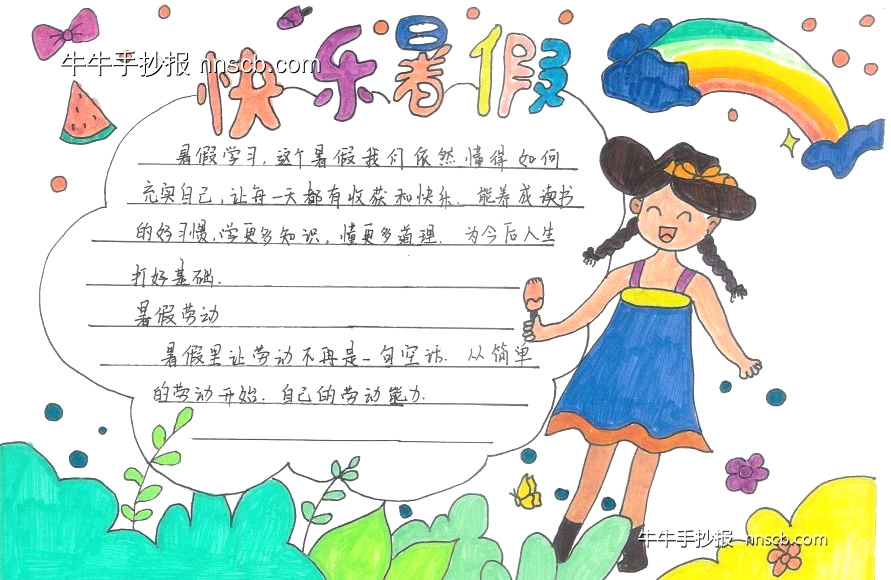 牛牛手抄报 nnscb.com
快乐暑假
暑假学习,这个暑假我们依然懂得如何
充实自己,让每一天都有收获和快乐.能养成读书
的好习惯,学更多知识,懂更多道理.为今后人生
打好基础.
暑假劳动
暑假里让劳动不再是一句空话.从简单
的劳动开始.自己的劳动能力.
牛牛手抄报 nnscb.com